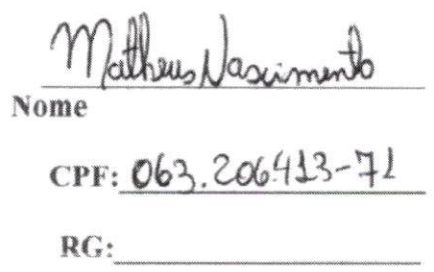 Matheus Nascimento
Nome
CPF: 063.206413-71
RG: